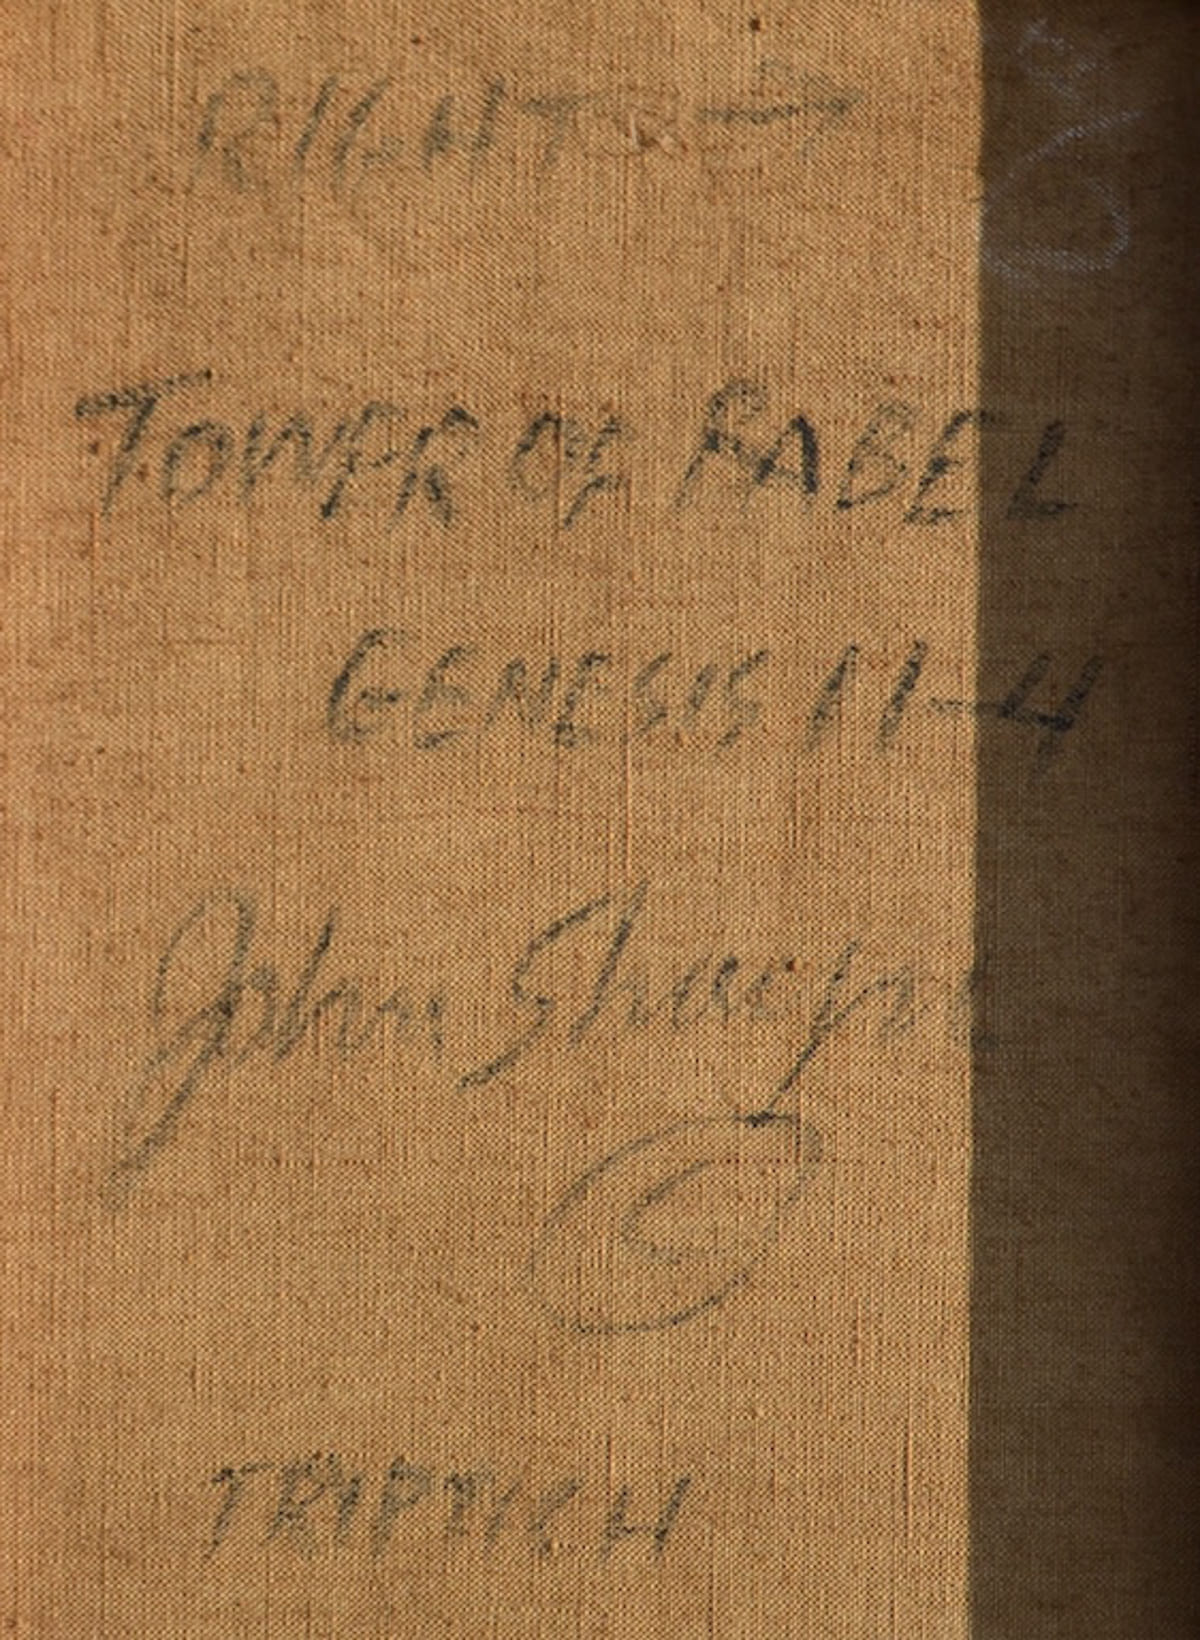 RIGHT →
TOWER OF BABEL
GENESIS 11-4
John Sharp
©
TRIPTICH